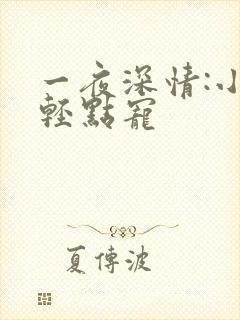 一夜深情:小
輕點寵
夏傳波